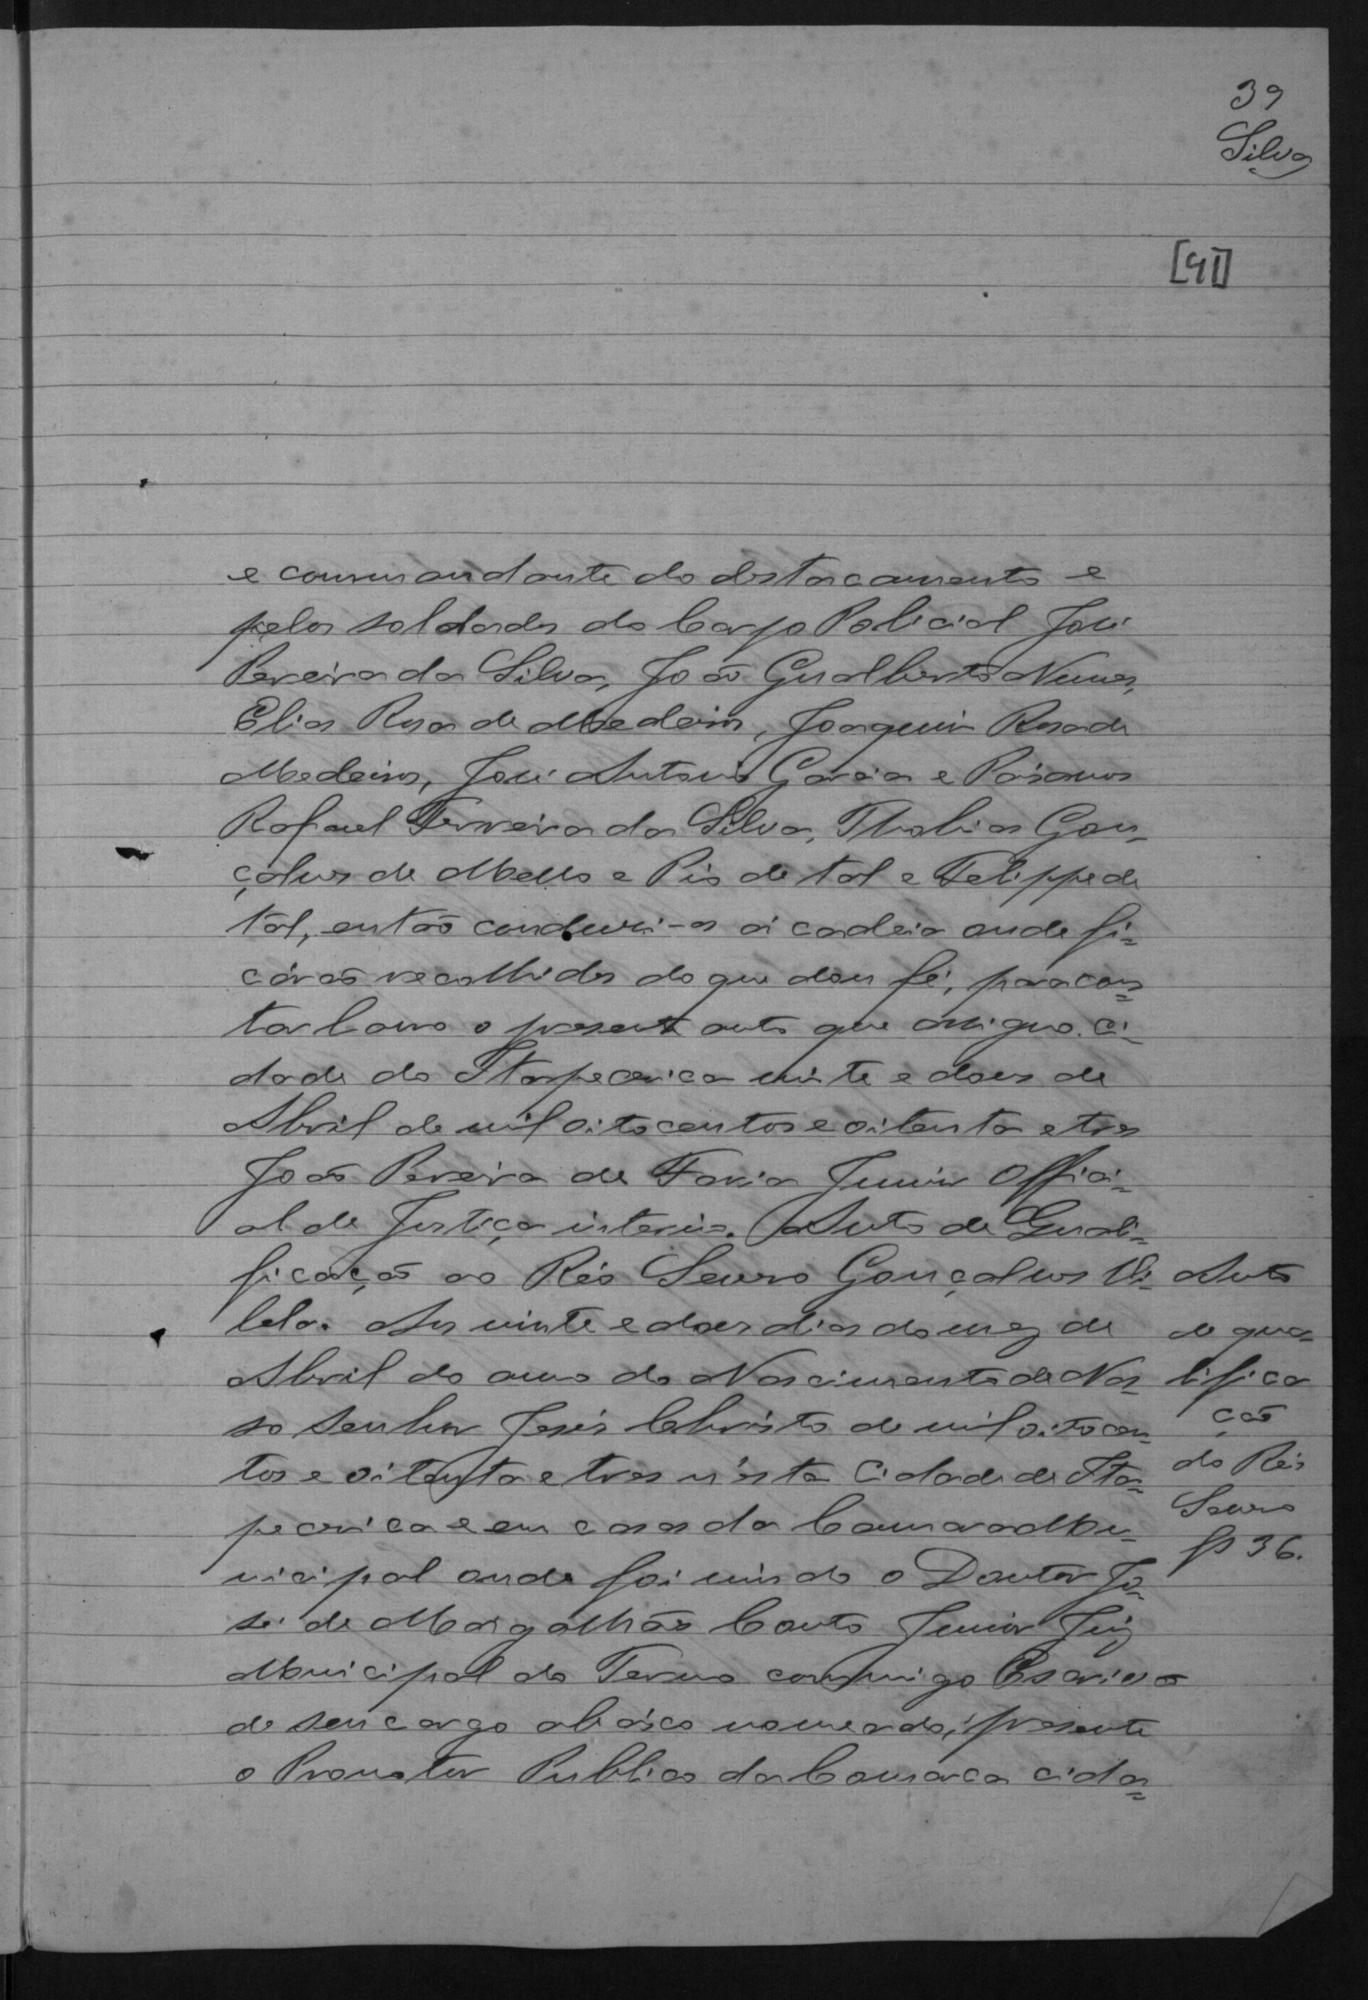 39
Silva
[41]
e commandante do destacamento e
pelos soldados do Corpo Policial José
Pereira da Silva, João Gualberto Nunes,
Elias Rosa de Medeiros, Joaquim Rosa de
Medeiros, José Antonio Garcia e Paisanos
Rafael Ferreira da Silva, Thobias Gon-
çalves de Mello e Pio de tal e Felippe de
tal, então conduzi-os á cadeia onde fi-
cárão recolhidos do que dou fé, para cons-
tar lavro o presente auto que assigno. Ci-
dade do Itapecerica vinte e dous de
Abril de mil oitocentos e oitenta e tres
João Pereira de Faria Junior Offici-
al de Justiça interino. Auto de Quali-
ficação ao Réo Severo Gonçalves Vi-
lela. Aos vinte e dous dias do mez de
Abril do anno do Nascimento de Nos-
so Senhor Jesús Christo de mil oitocen-
tos e oitenta e tres n'ésta Cidade de Ita-
pecerica e em casas da Camara Mu-
nicipal onde foi vindo o Doutor Jo-
sé de Magalhães Couto Junior Juiz
Municipal do Termo commigo Escrivão
de seu cargo abáixo nomeado, presente
o Promotor Publico da Comarca cida-
Auto
de qua-
lifica
ção
do Réo
Severo
fs 36.